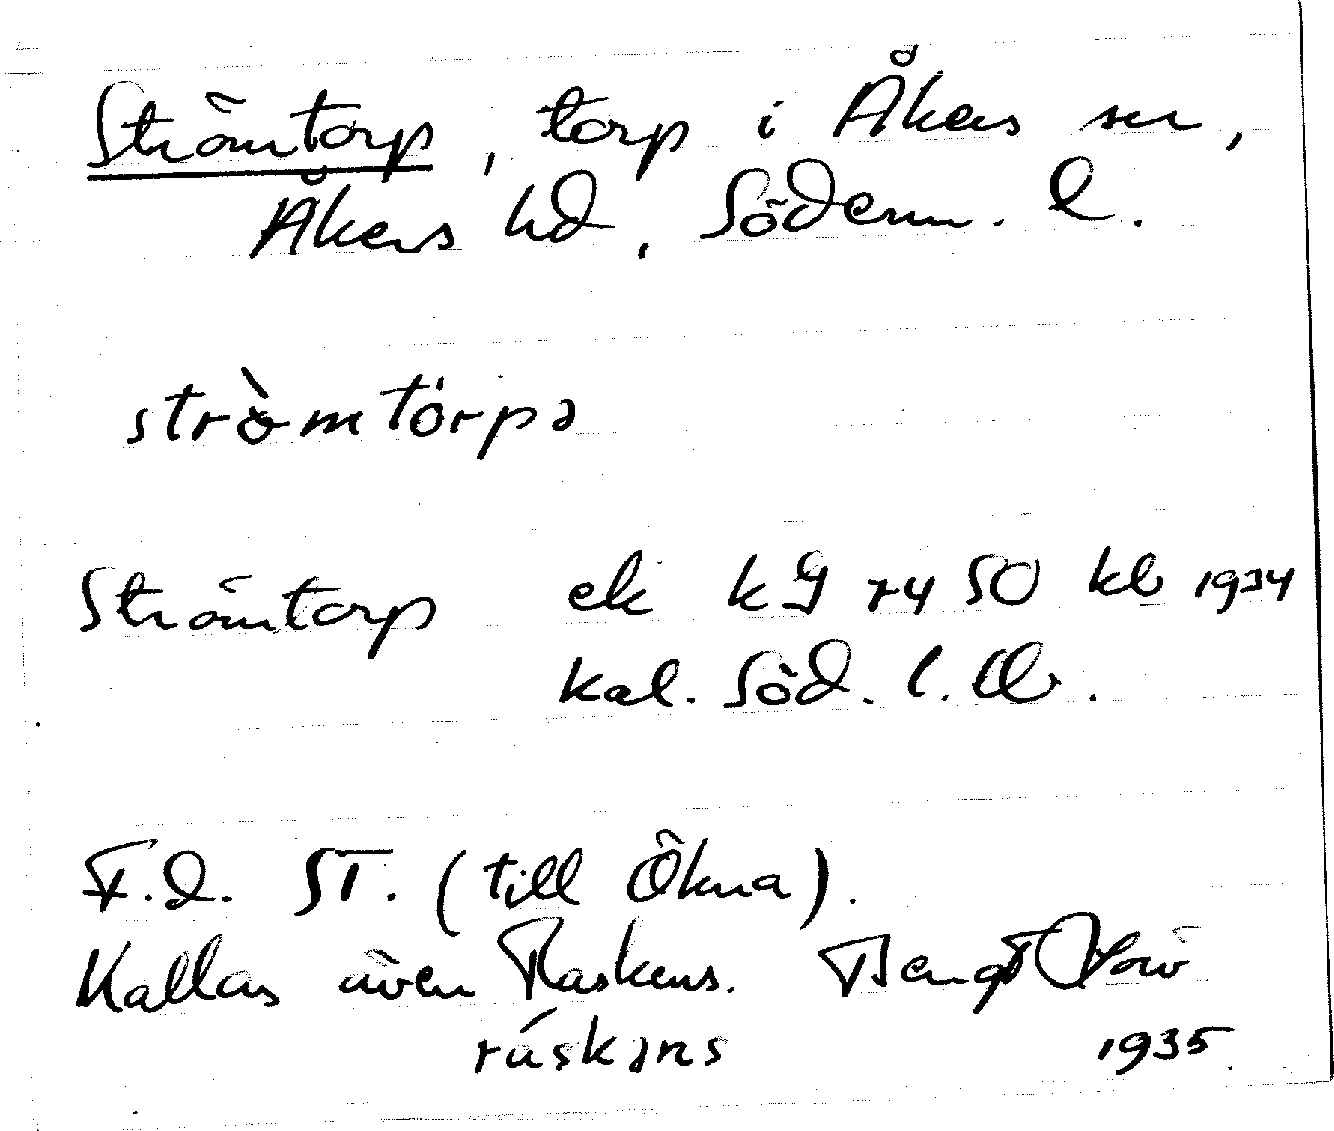 Strömtorp, torp i Åkers sn,
Åkers hd, Söderm. l.
strò̀mtörpə
Strömtorp ek kg 74 SO kb 1934
kal. Söd. l. Ö.
F.d. ST. (till Ökna).
Kallas även Raskens. Bengt
ráskəns 1935